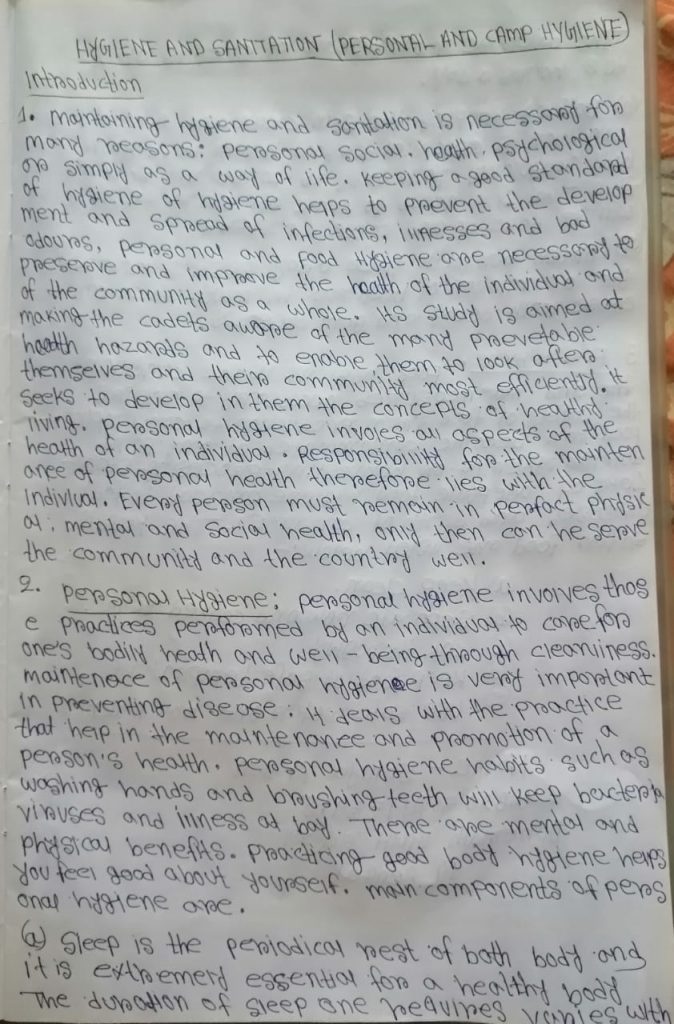 HYGIENE AND SANITATION (PERSONAL AND CAMP HYGIENE)
Introduction
1. maintaining hygiene and sanitation is necessary for
many reasons: personal social. health. psychological
or simply as a way of life. Keeping a good standard
of hygiene of hygiene helps to prevent the develop
ment and spread of infections, illnesses and bad
odours, personal and food Hygiene are necessary to
preserve and improve the health of the individual and
of the community as a whole. Its study is aimed at
making the cadets aware of the many prevetable
health hazards and to enable them to look after
themselves and their community most efficiently. it
seeks to develop in them the concepts of healthy
living. personal hygiene involes all aspects of the
health of an individual. Responsibility for the mainten
ance of personal health therefore lies with the
Indivlual. Every person must remain in perfact physic
al; mental and social health, only then can he serve
the community and the country well.
2. Personal Hygiene; personal hygiene involves thos
e practices performed by an individual to care for
one's bodily heath and well-being through cleanliness.
maintenace of personal hygienee is very important
in preventing disease; it deals with the practice
that help in the maintenance and promotion of a
person's health. personal hygiene habits such as
washing hands and brushing teeth will keep bacteria
viruses and illness at bay. There are mental and
physical benefits. practicing good body hygiene helps
you feel good about yourself. main components of pers
onal hygiene are.
(a) Sleep is the periodical rest of both body and
it is extremely essential for a healthy body
The duration of sleep one requires varies with